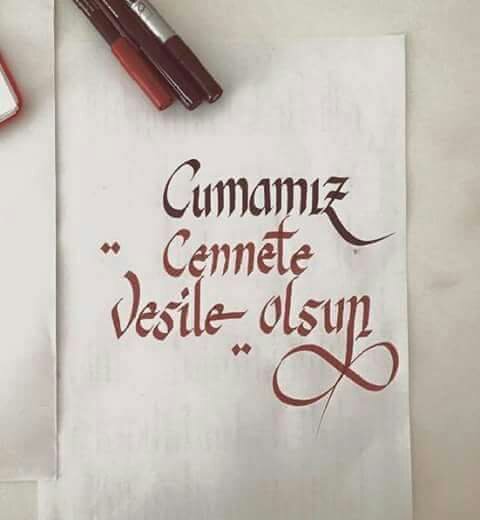 Cumamız
Cennete
Vesile olsun